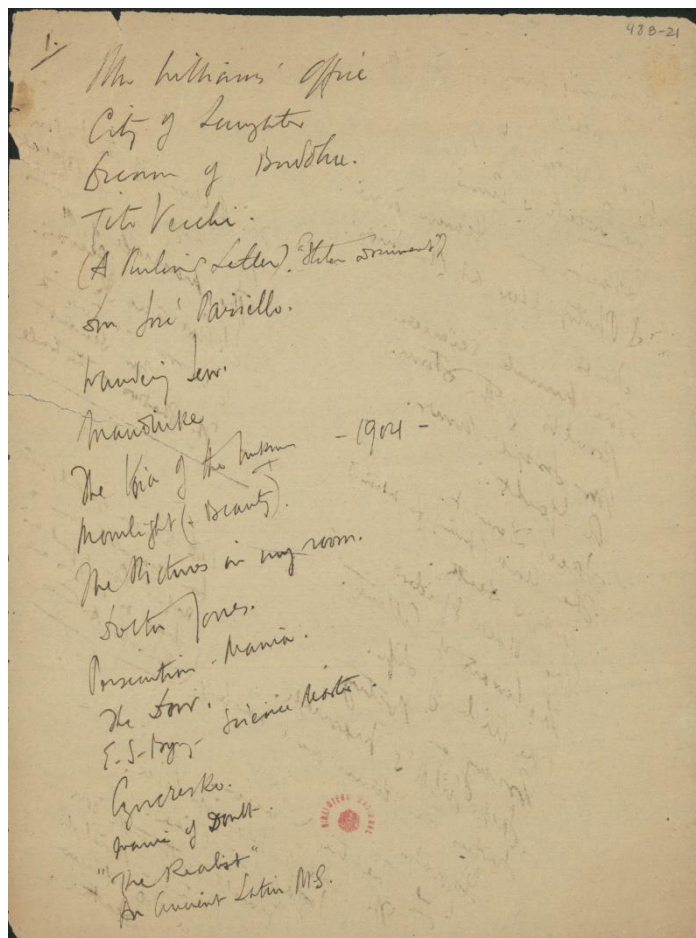 48B-21
1.
Mr. Williams' Office
City of Laughter
Dream of Buddha.
Tito Vecchi.
(A Ruling Letter). "
San José Paisiello.
Wandering Jew.
Mandrake
The Voice of the Unknown - 1904 -
Moonlight (+ Beauty).
The Pictures in my room.
Doctor Jones.
Persecution-Mania.
The Door.
E.S. Science Master.
Czneresko.
Mania of Doubt.
"The Realist"
An Ancient Latin M.S.
BIBLIOTECA NACIONAL